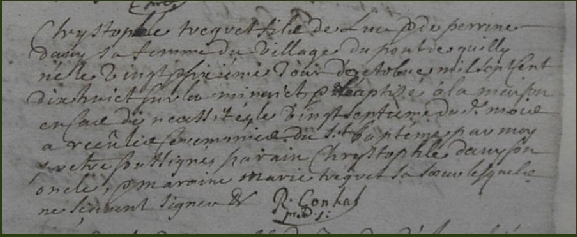 Chrystophle treguet fils de Luc p de perrine
dauy sa femme du village du pont de quilly
né le vingt sixieme Jour doctobre mil sept cent
dix huict sur la minuict baptise a la maison
en cas de necessité, le vingt septieme du d. mois
a recu les ceremonies du St Bapteme par moy
pretre soussigné parain Chrystophle dauy son
oncle, maraine marie treguet sa soeur lesquels
ne scavent signer &
R. Conhal